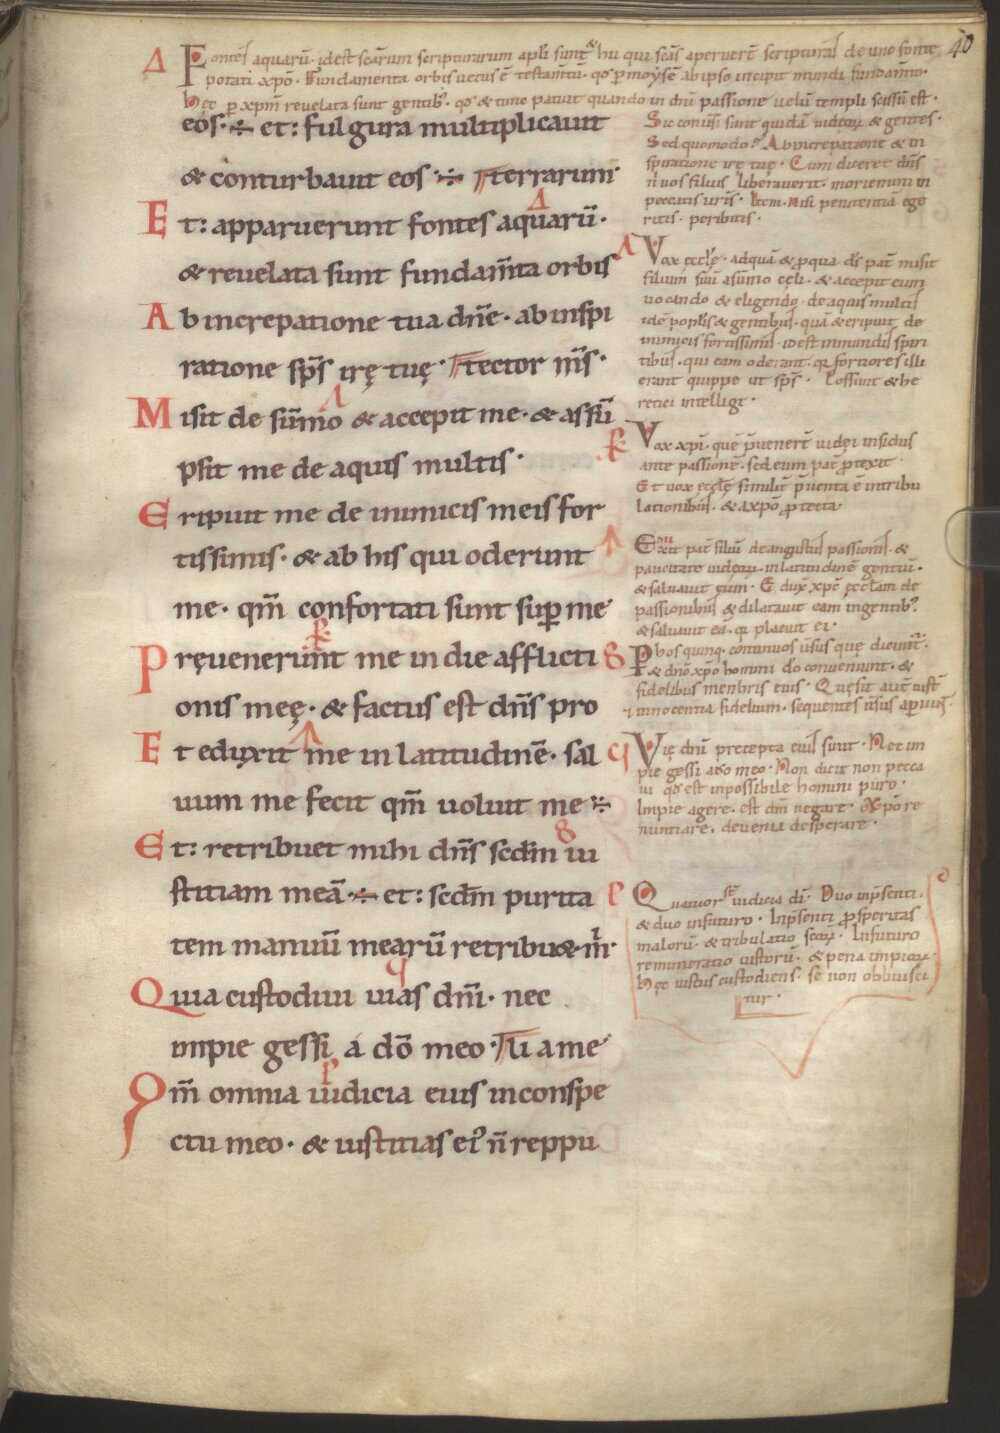 40
Fontes aquarū. idest scārum scripturarum apłi sunt. hii qui scās aperuerт̄ scripturas de uno fonte
potati xp̄o. Fundamenta orbis uetus ē testam̄tū. qđ p moysē ab ipso incipit mundi fundam̄to.
hęc p xpm̄ reuelata sunt gentib; qđ & tunc patuit quando in dn̄i passione uelū templi scissū est.
eos. ÷ et: fulgura multiplicauit
& conturbauit eos ÷ terrarum
Et: apparuerunt fontes aquarū.
& reuelata sunt fundam̄ta orbis
Ab increpatione tua dn̄e. ab inspi
ratione sp̄s irę tuę. tector m̄s.
Misit de sum̄o & accepit me. & assū
psit me de aquis multis.
Eripuit me de inimicis meis for
tissimis. & ab his qui oderunt
me. qm̄ confortati sunt sup me
Pręuenerunt me in die afflicti
onis meę. & factus est dn̄s pro
Et eduxit me in latitudinē. sal
uum me fecit qm̄ uoluit me ÷
Et: retribuet mihi dn̄s scdm̄ iu
stitiam meā. ÷ et: scdm̄ purita
tem manuū mearū retribu& m̄.
Quia custodiui uias dn̄i. nec
impie gessi a dō meo.
Qm̄ omnia iudicia eius in conspe
ctu meo. & iustitias ei' n̄ reppu
Sic conuersi sunt quidā iudeoꝝ & gentes.
Sed quomodo? Ab increpatione & in
spiratione irę tuę. Cum diceret dn̄s
n̄ uos filius liberauerit. moriemini in
peccatis ur̄is. Item. Nisi penitentiā ege
ritis. peribitis.
Vox ecclę. ad quā & p qua ds̄ pat̄ misit
filium suū a sum̄o cęli. & accepit eum
uocando & eligendo. de aquis multis
idē poplis & gentibus. quā & eripuit de
inimicis fortissimis. idest inmundis spiri
tibus. qui eam oderant. qꝛ fortiores illi
erant quippe ut sp̄s. Possunt & he
retici intelligi.
Vox xpi. quē p̄uenerт̄ iudęi insidiis
ante passionē. sed eum pat̄ protexit
Et uox ęcclę similit̄ p̄uenta ē in tribu
lationibus. & a xpō protecta
Emisit pat̄ filiū de angustiis passionis. &
paucitate iudeoꝝ. in latitudinē gentiū.
& saluauit eum. Eduxit xpc̄ ęcclam de
passionibus & dilatauit eam in gentib;
& saluauit eā. qꝛ placuit ei.
Phos quinq; continuos uersus quę dicunt.
& dn̄o xpō homini dō conueniunt. &
fidelibus menbris eius. Quęsit aut̄ iust
innocentia fidelium. sequentes uersus
Vię dn̄i precepta eius sunt. Nec im
pie gessi a dō meo. Non dicit non pecca
ui qđ est inpossibile homini puro.
Impie agere. est dm̄ negare. xpō re
nuntiare. de uenia desperare.
Quatuor st̄ iudicia di. Duo in p̄senti.
& duo in futuro. In p̄senti prosperitas
malorū. & tribulatio scōꝝ. In futuro
remuneratio iustorū. & pena impioꝝ.
hęc iustus custodiens. se non obliuisci
tur.